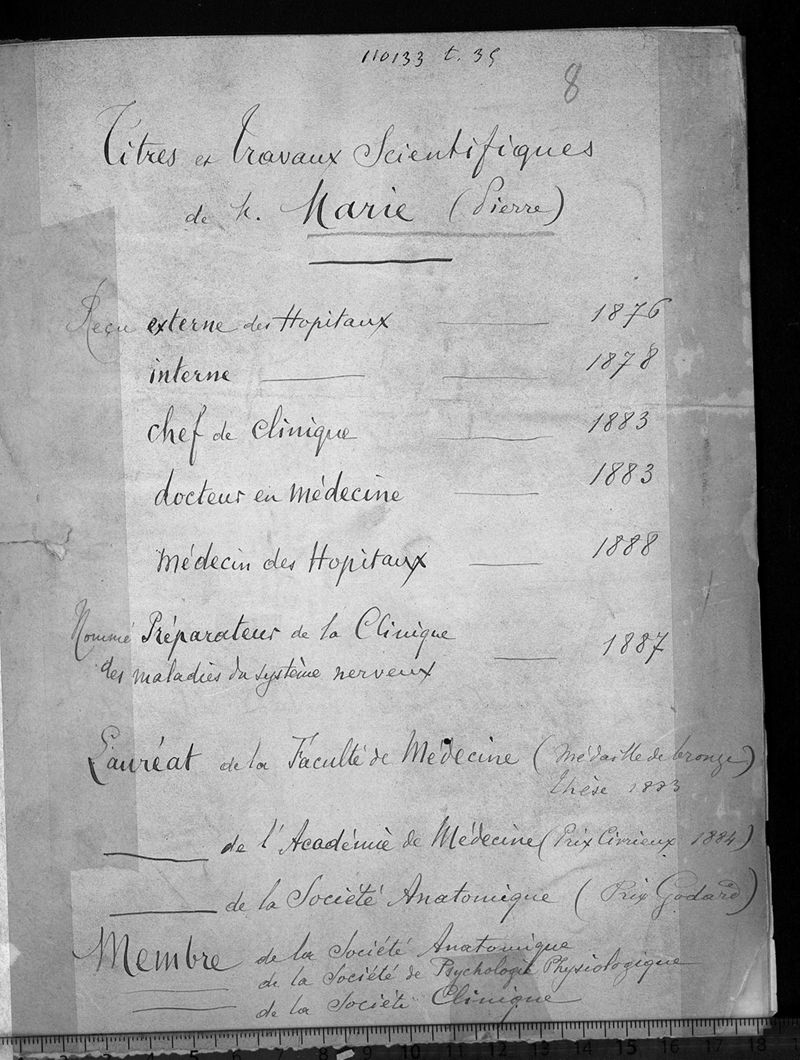 110133 t. 35
8
Titres et Travaux Scientifiques
de M. Marie (Pierre)
Reçu externe des Hopitaux 1876
interne 1878
chef de clinique 1883
docteur en médecine 1883
Médecin des Hopitaux 1888
Nommé Préparateur de la Clinique
des maladies du système nerveux 1887
Lauréat de la Faculté de Médecine (Médaille de bronze)
thèse 1883
de l'Académie de Médecine (Prix Civrieux 1884)
de la Société Anatomique (Prix Godard)
Membre de la Société Anatomique
de la Société de Psychologie Physiologique
de la Société Clinique
2 3 4 5 6 7 8 9 10 11 12 13 14 15 16 17 18